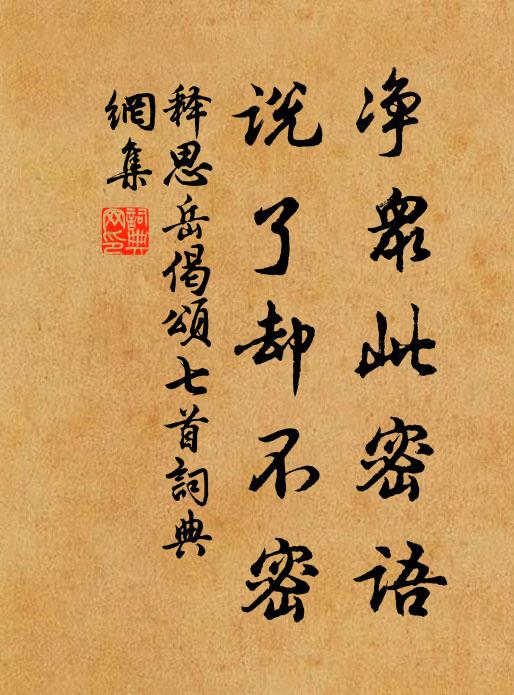 净众此密语
说了却不密
释思岳偈頌七首詞典
網集
詞典网印